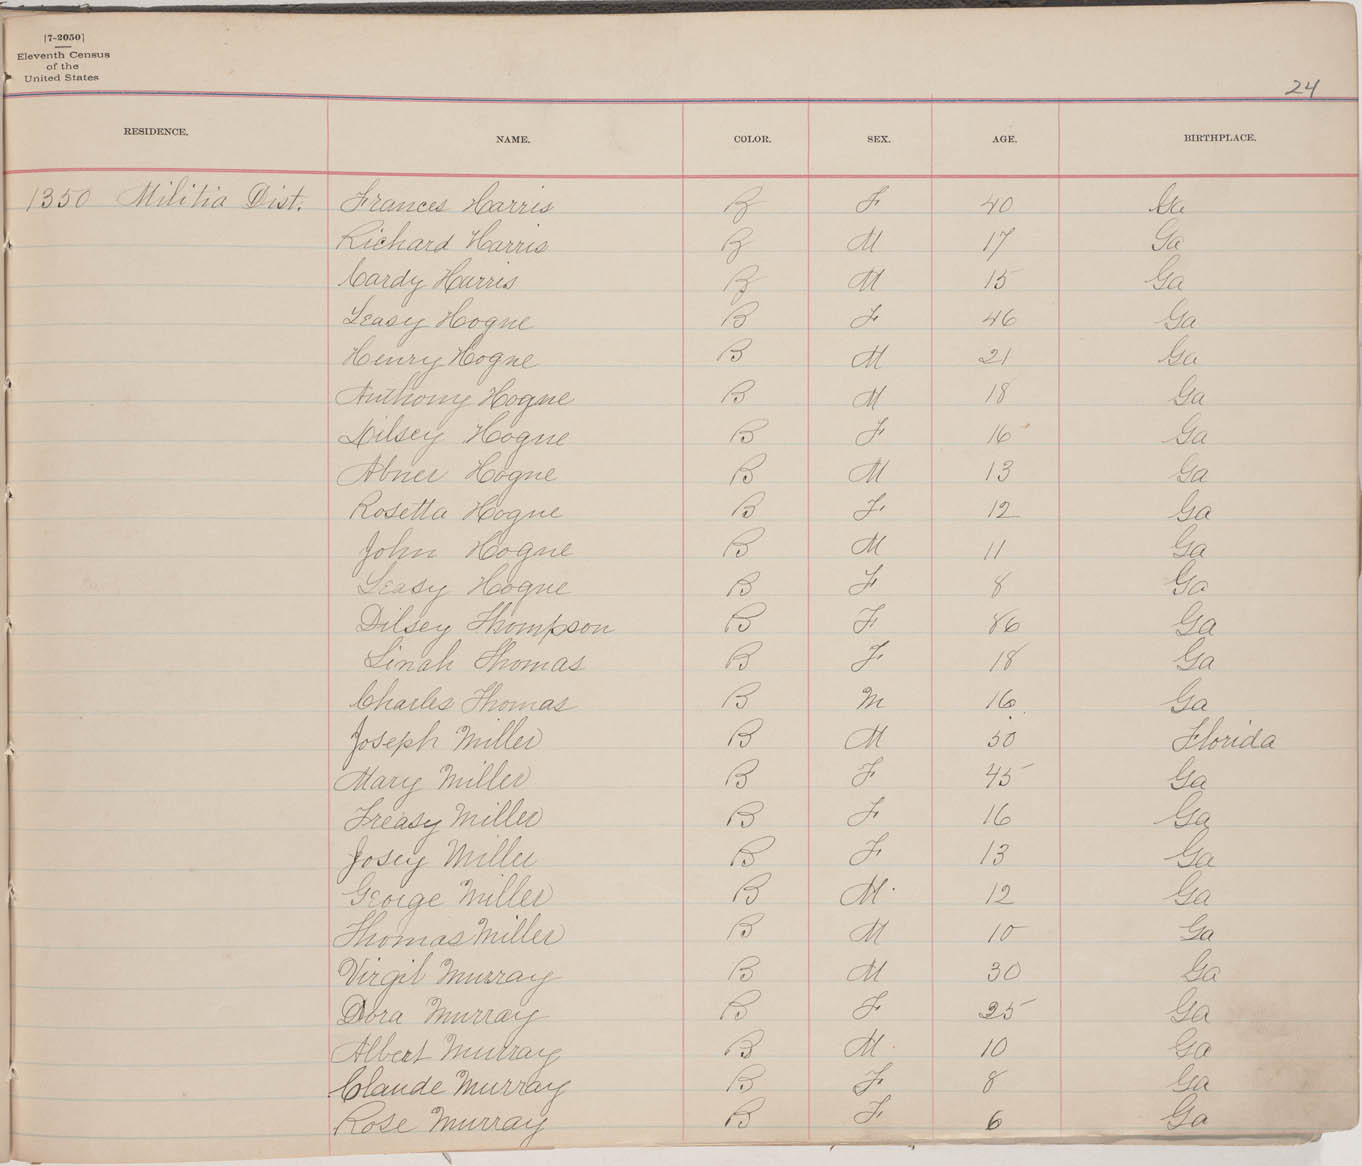 [7-2050]
Eleventh Census
of the
United States
24
RESIDENCE. NAME. COLOR. SEX. AGE. BIRTHPLACE.
1350 Militia Dist. Frances Harris B F 40 Ga
Richard Harris B M 17 Ga
Cardy Harris B M 15 Ga
Leasy Hogne B F 46 Ga
Henry Hogne B M 21 Ga
Anthony Hogne B M 18 Ga
Dilsey Hogne B F 16 Ga
Abner Hogne B M 13 Ga
Rosetta Hogne B F 12 Ga
John Hogne B M 11 Ga
Leasy Hogne B F 8 Ga
Dilsey Thompson B F 86 Ga
Linah Thomas B F 18 Ga
Charles Thomas B M 16 Ga
Joseph Miller B M 50 Florida
Mary Miller B F 45 Ga
Treasy Miller B F 16 Ga
Josey Miller B F 13 Ga
George Miller B M. 12 Ga
Thomas Miller B M 10 Ga
Virgil Murray B M 30 Ga
Dora Murray B F 25 Ga
Albert Murray B M. 10 Ga
Claude Murray B F 8 Ga
Rose Murray B F 6 Ga